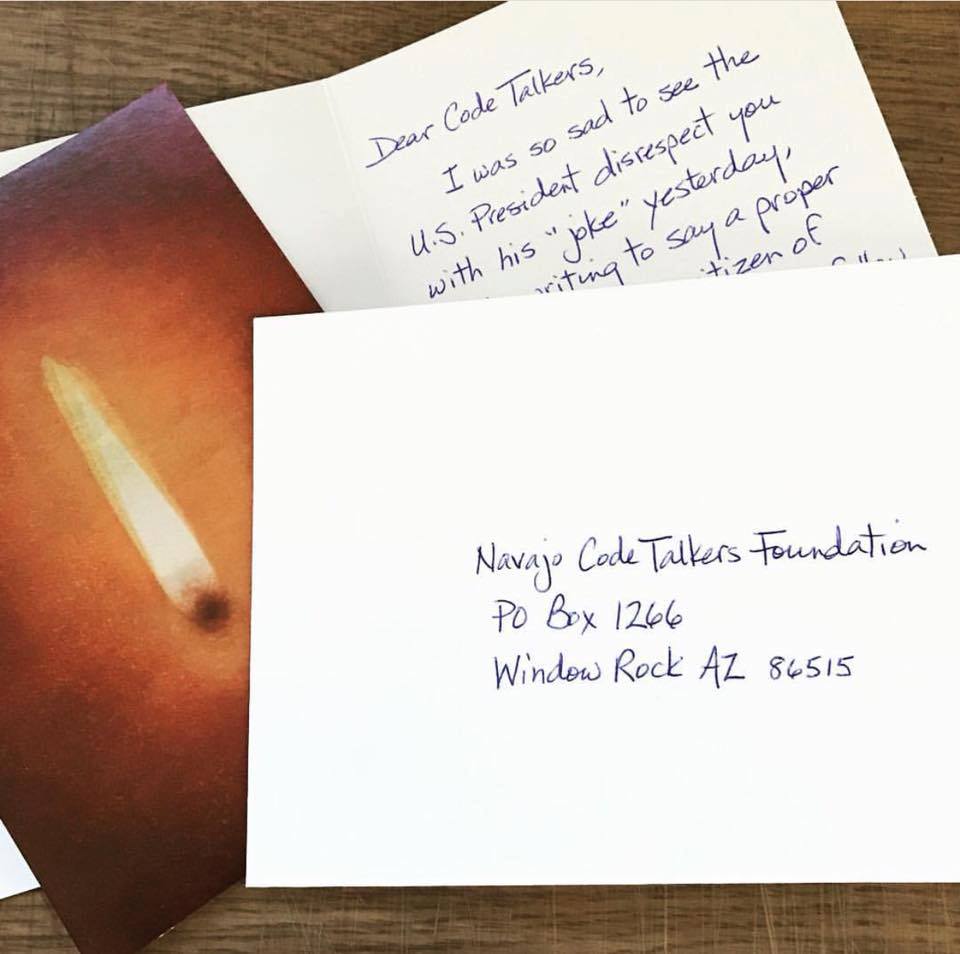 Dear Code Talkers,
I was so sad to see the
U.S. President disrespect you
with his "joke" yesterday,
to say a proper
of
Navajo Code Talkers Foundation
PO Box 1266
Window Rock AZ 86515